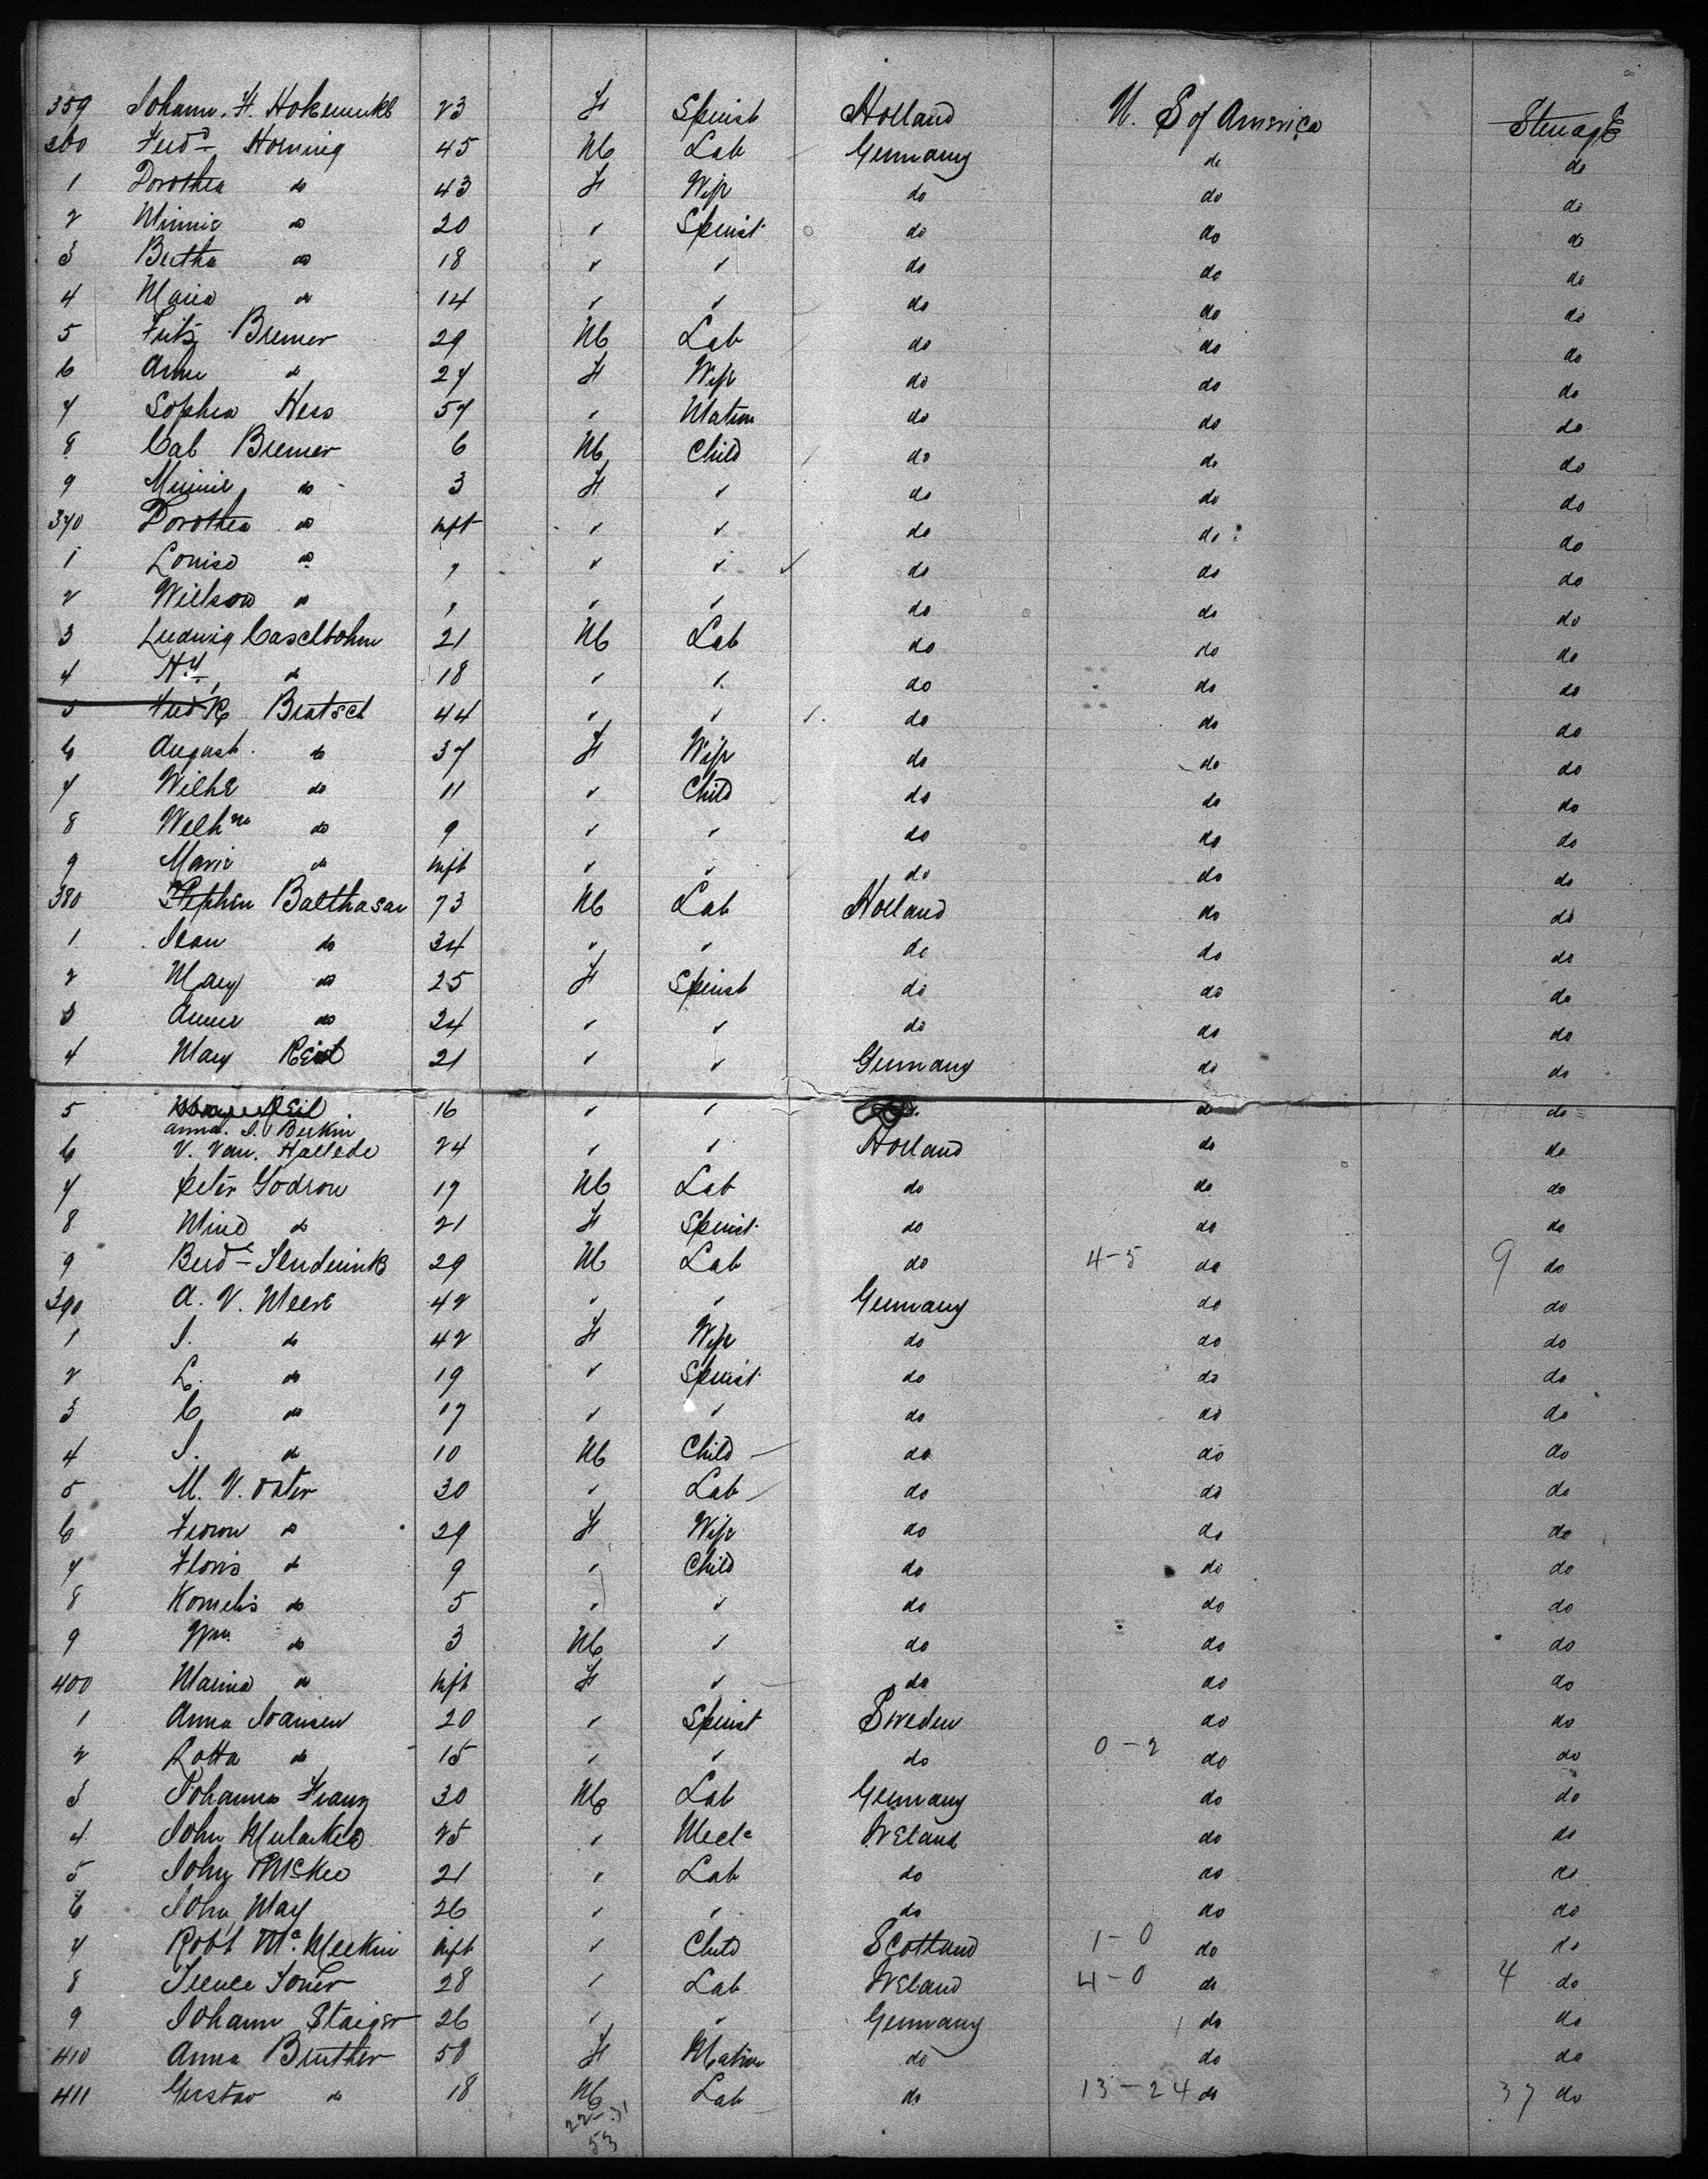 359 Johann. H. F Spinst Holland U. S of America Steerage
360 Fredk Horning 45 M Lab Germany do do
1 Dorothea do 43 F Wife do do do
2 Minnie do 20 " Spinst do do do
3 Bertha do 18 " " do do do
4 Maria do 14 " " do do do
5 Fritz Bremer 29 M Lab do do do
6 Anne do 27 F Wife do do do
7 Sophia Hess 57 " Matron do do do
8 Bremer 6 M Child do do do
9 Minnie do 3 F " do do do
370 Dorothea do Inft " " do do do
1 Louisa do " " " do do do
2 do " " " do do do
3 Ludwig Caselbohm 21 M Lab do do do
4 Hy do 18 " " do do do
5 Fredk Bratsch 44 " " do do do
6 August. do 37 F Wife do do do
7 Wilhe do 11 " Child do do do
8 Wilhm do 9 " " do do do
9 Marie do Inft " " do do do
380 Balthasar 73 M Lab Holland do do
1 Jean do 34 " " do do do
2 Mary do 25 F Spinst do do do
3 Anne do 24 " " do do do
4 Mary 21 " " Germany do do
5 16 " " do do
Anna. S.
6 V. Van. Hallede 24 " " Holland do do
7 Peter Godron 19 M Lab do do do
8 Mina do 21 F Spinst do do do
9 29 M Lab do 4-5 do 9 do
390 A. V. Meere 42 " " Germany do do
1 J. do 42 F Wife do do do
2 L. do 19 " Spinst do do do
3 C do 17 " " do do do
4 J. do 10 M Child do do do
5 M. V. Oster 30 " Lab do do do
6 do 29 F Wife do do do
7 Floris do 9 " Child do do do
8 Kornelis do 5 " " do do do
9 Wm. do 3 M " do do do
400 do Inft F " do do do
1 Anna Joansen 20 " Spinst Sweden do do
2 Lotta do 15 " " do 0-2 do do
3 Johannes Franz 30 M Lab Germany do do
4 John 25 " Mecc Ireland do do
5 John McKee 21 " Lab do do do
6 John May 26 " " do do do
7 Robt Mc. Meekin Inft " Child Scotland 1-0 do do
8 28 " Lab Ireland 4-0 do 4 do
9 Johann Staiger 26 " " Germany 1 do do
410 Anna 58 F Matron do do do
411 Gustav do 18 M Lab do 13-24 do 37 do
22-31
53